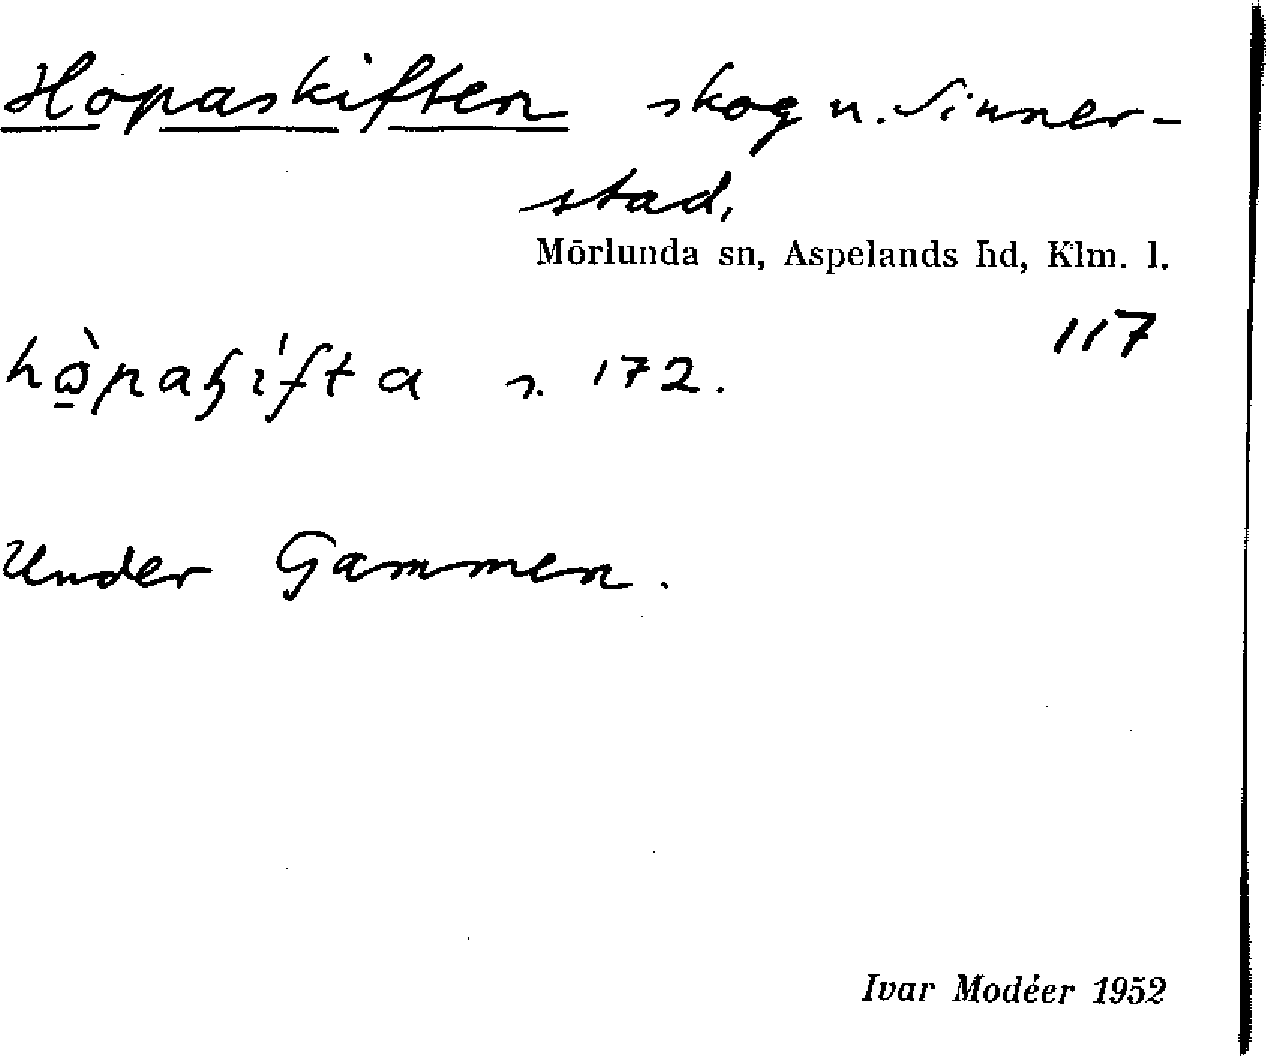 Hopaskiften skog n. Sinner-
stad,
Mörlunda sn, Aspelands hd, Klm. l.
117
hɷ̀paꜧi̍fta s. 172.
Under Gammen.
Ivar Modéer 1952